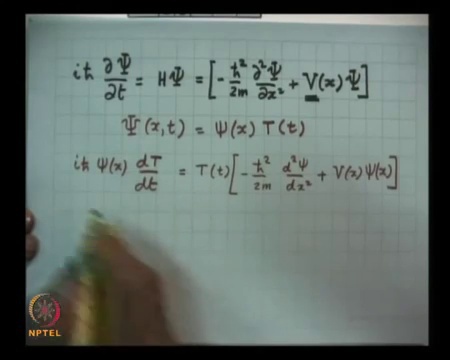 iℏ ∂Ψ/∂t = HΨ = [-ℏ²/2m ∂²Ψ/∂x² + V(x)Ψ]
Ψ(x,t) = ψ(x) T(t)
iℏ ψ(x) dT/dt = T(t)[-ℏ²/2m d²ψ/dx² + V(x)ψ(x)]
NPTEL